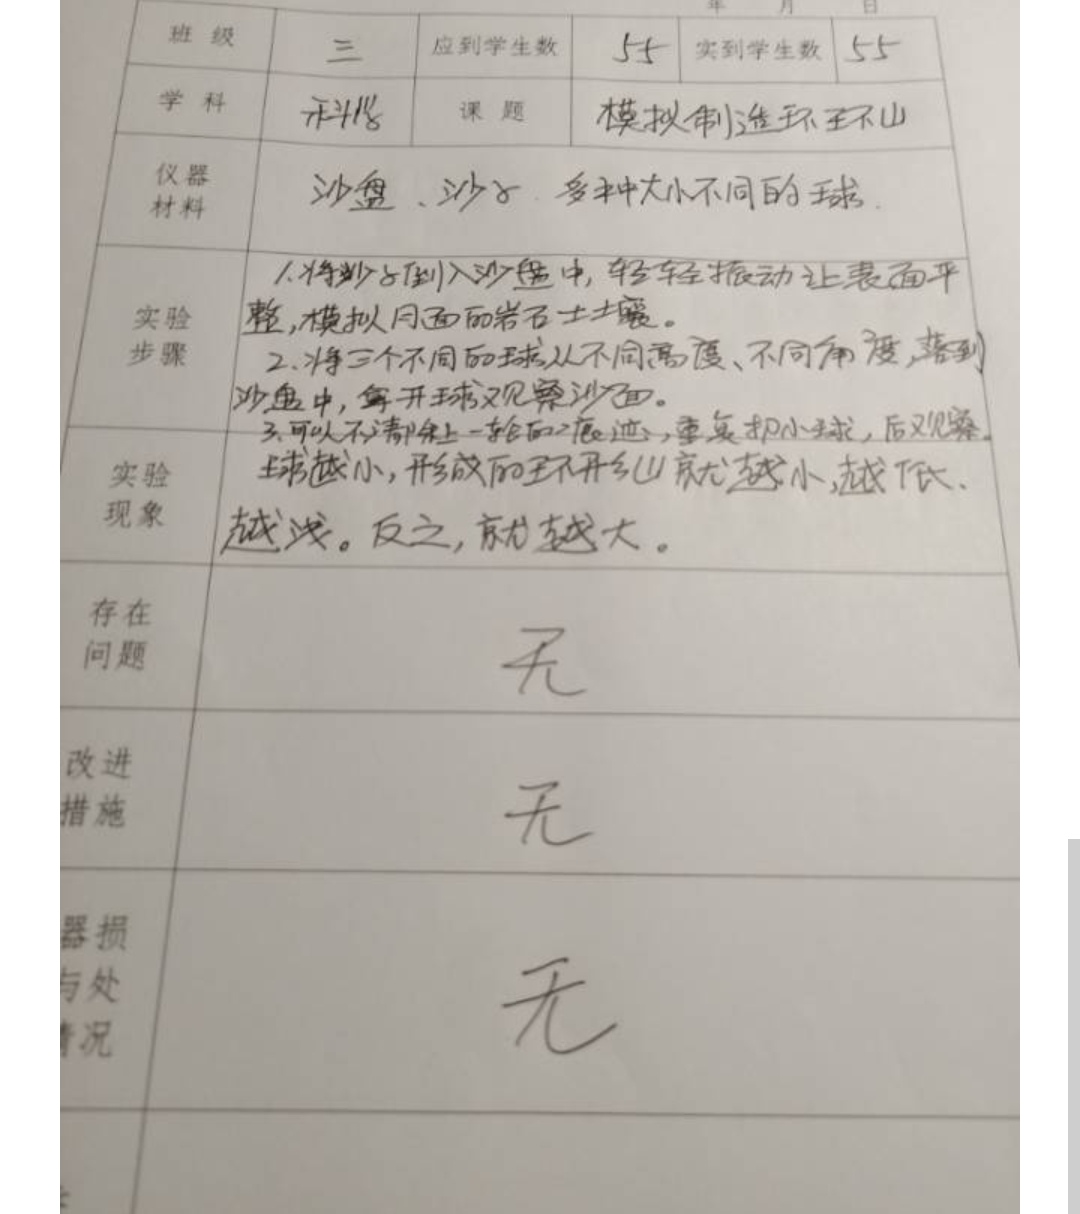 年 月 日
班级 三 应到学生数 55 实到学生数 55
学科 科学 课题 模拟制造环形山
仪器
材料
沙盘、沙子、多种大小不同的球.
实验
步骤
1.将沙子倒入沙盘中,轻轻振动让表面平
整,模拟月面的岩石土壤。
2.将三个不同的球从不同高度、不同角度,落到
沙盘中,拿开球观察沙面。
3.可以不清除上一轮的痕迹,重复扔小球,后观察。
实验
现象
球越小,形成的环形山就越小,越低、
越浅。反之,就越大。
存在
问题
无
改进
措施
无
器损
与处
情况
无